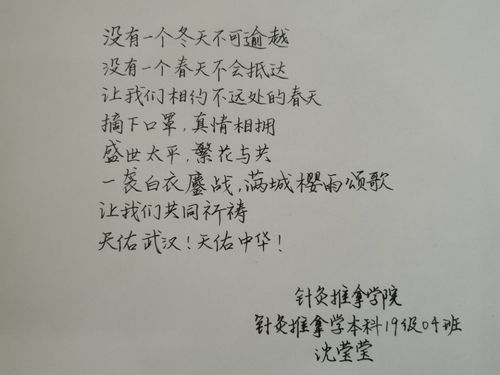 没有一个冬天不可逾越
没有一个春天不会抵达
让我们相约不远处的春天
摘下口罩,真情相拥
盛世太平,繁花与共
一袭白衣鏖战,满城樱雨颂歌
让我们共同祈祷
天佑武汉!天佑中华!
针灸推拿学院
针灸推拿学本科19级04班
沈莹莹